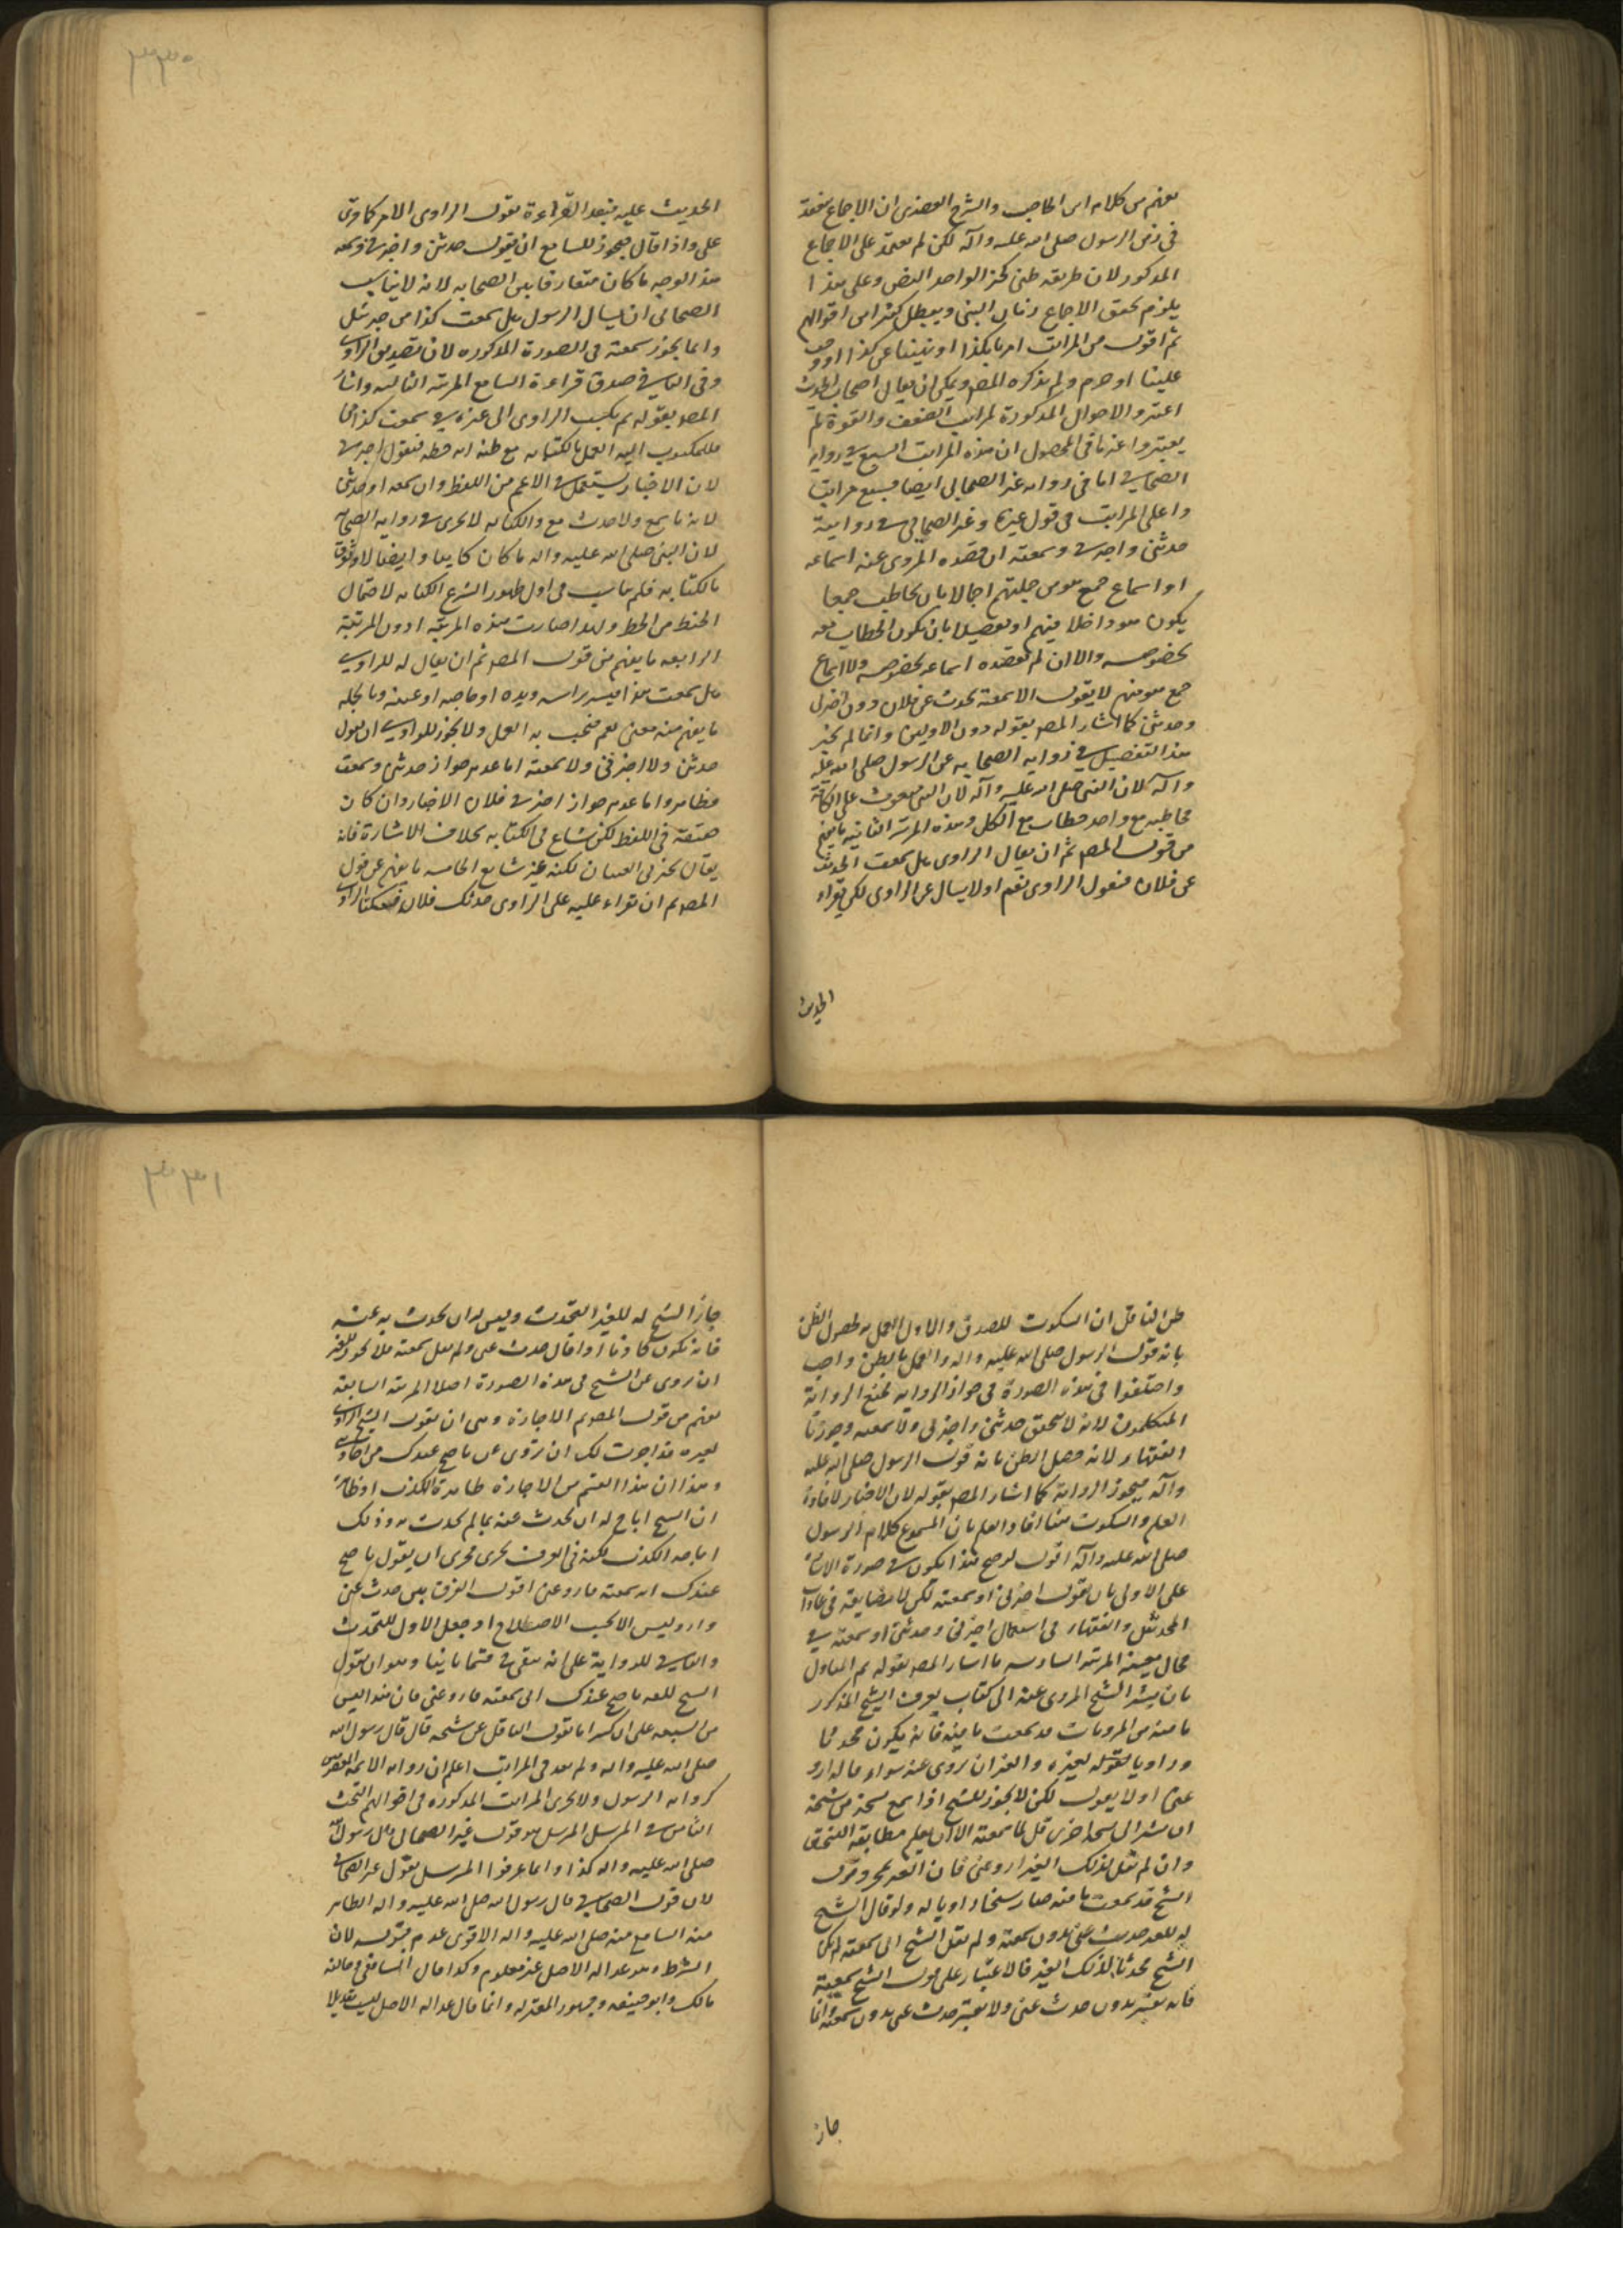 يفهم من كلام ابن الحاجب والشرح العضدى ان الاجماع ينعقد
فى زمن الرسول صلى الله عليه وآله لكن لم يعتمد على الاجماع
المذكور لان طريقه ظنى كخبر الواحد البعض وعلى هذا
يلزم تحقق الاجماع زمان النبى ويبطل كثير من اقوالهم
ثم اقول من المراتب امرنا بكذا او نهينا عن كذا او وجب
علينا او حرم ولم يذكره المصـ ويمكن ان يقال اصحاب الحديث
اعتبروا الاحوال المذكورة لمراتب الضعف والقوة ولم
يعتبروا غيرها فى المحصول ان هذه المراتب السبع فى رواية
الصحابى اما فى رواية غير الصحابى ايضا فسبع مراتب
واعلى المراتب فى قول غيره وغير الصحابى فى روايته
حدثنى واخبرنى وسمعته ان قصده المروى عنه اسماعه
او اسماع جمع هو من جملتهم اجمالا بان يخاطب جمعا
يكون هو داخلا فيهم او تفصيلا بان يكون الخطاب معه
بخصوصه والا ان لم يقصده اسماعه بخصوصه ولا اسماع
جمع هو منهم لا يقول الا سمعته يحدث عن فلان دون اخبرنى
وحدثنى كما اشار المصـ بقوله دون الاولين وانما لم يجز
هذا التفصيل فى رواية الصحابه عن الرسول صلى الله عليه
وآله لان النبى صلى الله عليه وآله لان النبى مبعوث على الكافة
مخاطبه مع واحد خطاب مع الكل وهذه المرتبة الثانيه ما يفهم
من قول المصـ ثم ان يقال الراوى هل سمعت الحديث
عن فلان فيقول الراوى نعم او لا يسال عن الراوى لكن يقراء
الحديث
٣٣٠
الحديث عليه فبعد القراءة يقول الراوى الامر كما قرئ
على واذا قال فيجوز للسامع ان يقول حدثنى واخبرنى وسمعته
هذا الوجه ما كان متعارفا بين الصحابه لانه لا يناسب
الصحابى ان يسال الرسول هل سمعت كذا من جبرئيل
وانما يجوز سمعته فى الصورة المذكوره لان تصديق الراوى
وفى الثانى صدق قراءة السامع المرتبة الثالثه واشار
المصـ بقوله ثم يكتب الراوى الى غيره انى سمعت كذا من فلان
فللمكتوب اليه العمل بالكتابه مع ظنه انه خطه فيقول اخبرنى
لان الاخبار يستعمل فى الاعم من اللفظ وان سمعه او حدثنى
لانه ما سمع ولا حدث مع والكتابه لا يجرى فى رواية الصحابه
لان النبى صلى الله عليه واله ما كان كاتبا وايضا لا وثوق
بالكتابه فلم يناسب فى اول ظهور الشرع الكتابه لاحتمال
الخبط من الخط ولهذا صارت هذه المرتبة ادون المرتبة
الرابعه ما يفهم من قول المصـ ثم ان يقال له للراوى
هل سمعت هذا فيشير براسه ويده او حاجبه او عينه وبالجمله
ما يفهم منه معنى نعم فيجب به العمل ولا يجوز للراوى ان يقول
حدثنى ولا اخبرنى ولا سمعته اما عدم جواز حدثنى وسمعت
فظاهر واما عدم جواز اخبرنى فلان الاخبار وان كان
حقيقة فى اللفظ لكن شاع فى الكتابه بخلاف الاشارة فانه
يقال يخبرنى العينان لكنه غير شايع الخامسه ما يفهم عن قول
المصـ ثم ان يقراء عليه على الراوى حدثك فلان فيسكت الراوى
ظن الناقل ان السكوت للصدق والاول العمل به لحصول الظن
بانه قول الرسول صلى الله عليه واله والعمل بالظن واجب
واختلفوا فى هذه الصورة فى جواز الروايه فمنع الرواية
المتكلمون لانه لا يتحقق حدثنى واخبرنى ولا سمعته وجوزها
الفقهاء لانه حصل الظن بانه قول الرسول صلى الله عليه
وآله فيجوز الرواية كما اشار المصـ بقوله لان الاخبار لافادة
العلم والسكوت هنا افاد العلم بان المسموع كلام الرسول
صلى الله عليه وآله اقول لو صح هذا يكون فى صورة الاشارة
على الاولى بان يقول اخبرنى او سمعته لكن لا مضايقة فى عادات
المحدثين والفقهاء فى استعمال اخبرنى وحدثنى او سمعته فى
محال معينه المرتبة السادسه ما اشار المصـ بقوله ثم المناوله
بان يشير الشيخ المروى عنه الى كتاب يعرف الشيخ المذكور
ما فيه من المرويات قد سمعت ما فيه فانه يكون محدثا
وراويا بقوله لغيره والغير ان يروى عنه سواء قال له ارو
عنى او لا يقول لكن لا يجوز للشيخ اذا سمع نسخة من شيخه
ان يشير الى نسخة اخرى قبل لما سمعته الا ان يعلم مطابقة النسختين
وان لم يقل لذلك الغير ارو عنى فان الغير بمجرد قول
الشيخ قد سمعت ما فيه صار شيخا راويا له ولو قال الشيخ
له للغير حدث عنى بدون سمعته ولم يقل الشيخ انى سمعته لم يكن
الشيخ محدثا لذلك الغير فالاعتبار على قول الشيخ سمعته
فانه يعتبر بدون حدث عنى ولا يعتبر حدث عنى بدون سمعته وانما
جاز
٣٣١
جاز الشيخ له للغير التحدث وليس له ان يحدث به عنه
فانه يكون كاذبا او اذا قال حدث عنى ولم يقل سمعته فلا يجوز للغير
ان يروى عن الشيخ فى هذه الصورة اصلا المرتبة السابعة
يفهم من قول المصـ ثم الاجازه وهى ان يقول الشيخ الراوى
لغيره قد اجزت لك ان تروى عنى ما صح عندك من احاديثى
وهذا ان هذا القسم من الاجازه ظاهره الكذب او ظاهره
ان الشيخ اباح له ان يحدث عنه بما لم يحدث به وذلك
اباحة الكذب لكنه فى العرف يجرى مجرى ان يقول ما صح
عندك انى سمعته فارو عنى اقول الفرق بين حدث عنى
وارو ليس الا بحسب الاصطلاح او جعل الاول للتحدث
والثانى للرواية على انه يبقى فى قسم ثامن وهو ان يقول
الشيخ للغير ما صح عندك انى سمعته فارو عنى فان هذا ليس
من السبعه على ان كثيرا ما يقول الناقل عن شيخه قال قال رسول الله
صلى الله عليه واله ولم يعد فى المراتب اعلم ان رواية الائمة المعصومين
كرواية الرسول ولا يجرى المراتب المذكوره فى اقوالهم البحث
الثامن فى المرسل المرسل هو قول غير الصحابى قال رسول الله
صلى الله عليه واله كذا وانما عرفوا المرسل بقول غير الصحابى
لان قول الصحابى قال رسول الله صلى الله عليه واله الظاهر
منه السامع منه صلى الله عليه واله الاقوى عدم قبوله لان
الشرط وهو عدالة الاصل غير معلوم وكذا قال الشافعى وخالفه
مالك وابو حنيفه وجمهور المعتزله وانما قال عدالة الاصل ليست تعديلا